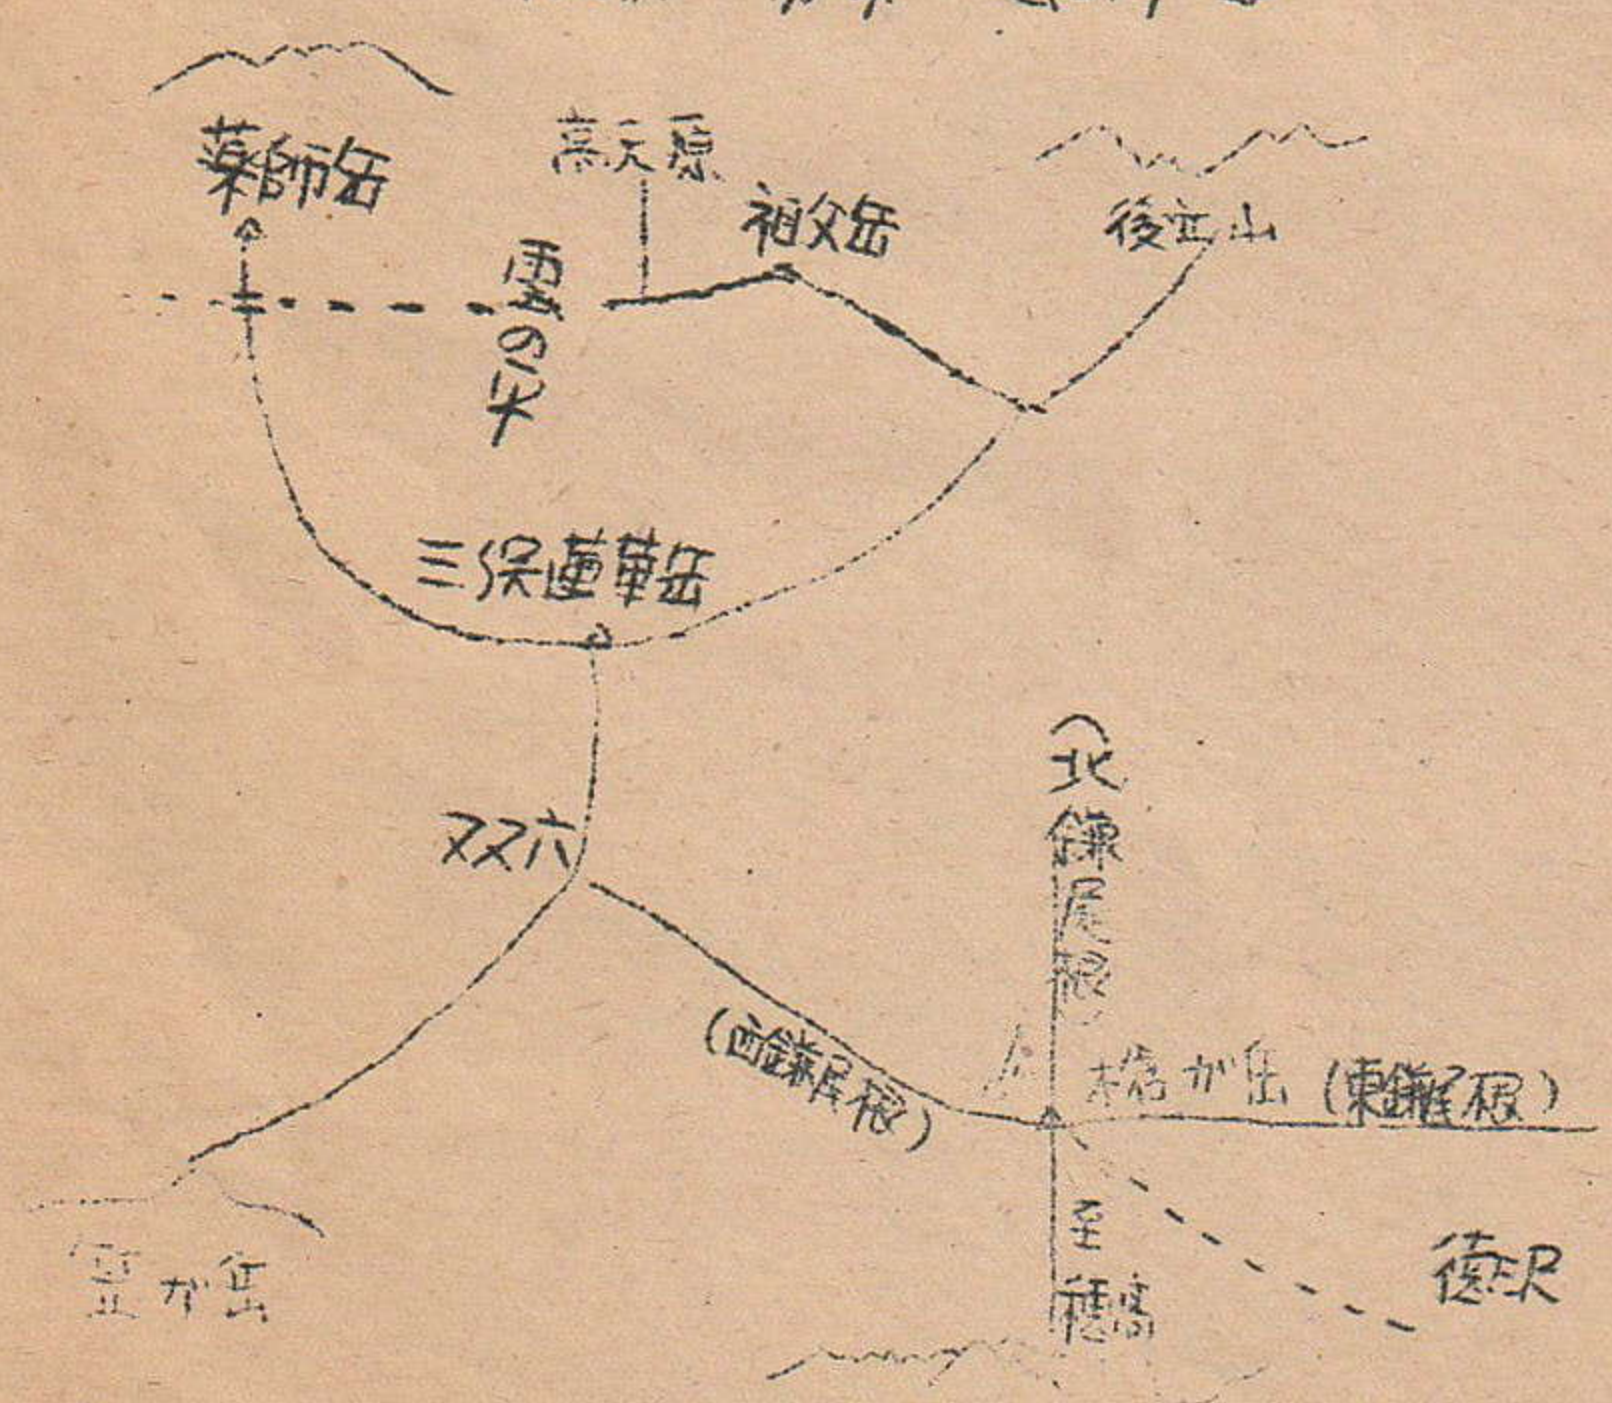 薬師岳
高天原
祖父岳
後立山
雲の平
三俣蓮華岳
双六
(北鎌尾根
(西鎌尾根)
槍が岳
(東鎌尾根)
至穂高
徳沢
が岳